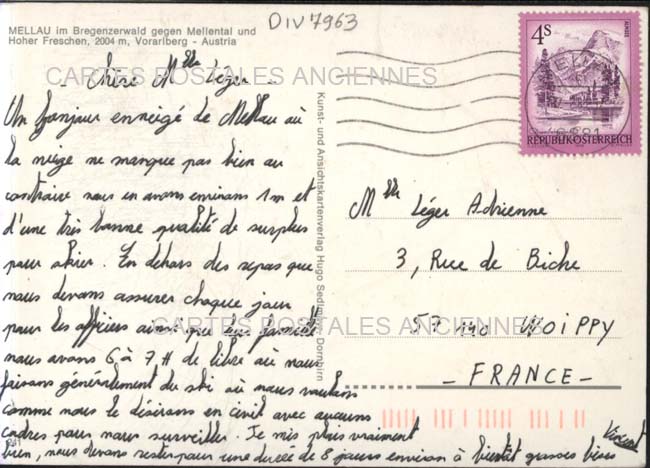 DIV7963
MELLAU im Bregenzerwald gegen Mellental und
Hoher Freschen, 2004 m, Vorarlberg - Austria
CARTES POSTALES ANCIENNES
Chère Mlle Léger
Un bonjour enneigé de Mellau où
la neige ne manque pas bien au
contraire nous en avons environs 1 m et
d'une très bonne qualité de surplus
pour skier. En dehors des repas que
nous devons assurer chaque jour
pour les officiers ainsi que
nous avons 6 à 7 H de libre où nous
faisons généralement du ski où nous voulons
comme nous le désirons en civil avec aucuns
cadres pour nous surveiller. Je suis plus vraiment
bien, nous devons rester pour une durée de 8 jours environ à bientôt grosses bises
Vincent
Kunst- und Ansichtskartenverlag Hugo Dornbirn
4 S
REPUBLIK ÖSTERREICH
Mlle Léger Adrienne
3, Rue de Biche
57140 WOIPPY
- FRANCE -
CARTES POSTALES ANCIENNES